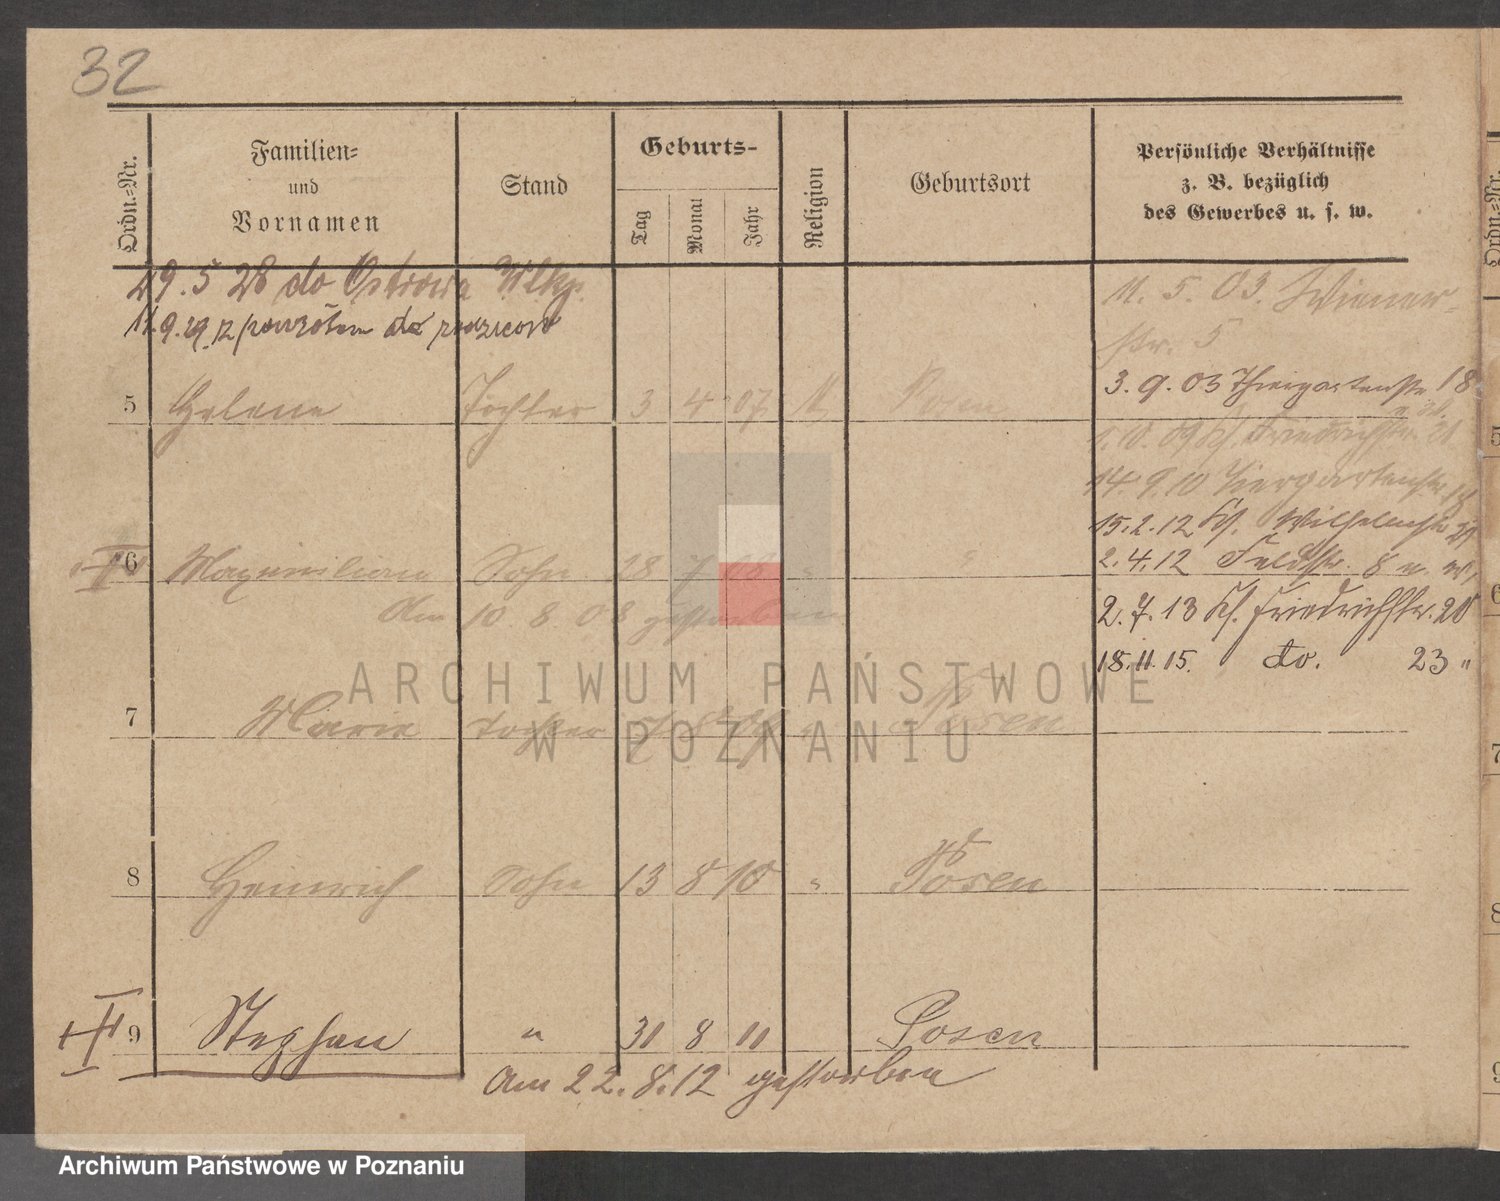 32
Ordn.=Nr.
Familien=
und
Vornamen
Stand
Geburts-
Tag
Monat
Jahr
Religion
Geburtsort
Persönliche Verhältnisse
z. B. bezüglich
des Gewerbes u. s. w.
29.5 28 do Ostrowa Wlkp.
11.9.29 z powrotem do rodziców
11. 5. 03. Wiener-
str. 5
3. 9. 03 Thiergartenstr 18
5 Helene Tochter 3 4 07 Posen
1. 10. 09 Kf. Friedrichstr. 21
14. 9. 10 Tiergartenstr
15. 2. 12 Kf. Wilhelmstr 21
6 Maximilian Sohn 28 7 08 "
2. 4. 12 Feldstr. 8
am 10 8 08 gestorben
2. 7. 13 Kf. Friedrichstr. 20
18. 11. 15. do. 23 "
ARCHIWUM PAŃSTWOWE
W POZNANIU
7 Maria Tochter 8 09 " Posen
8 Heinrich Sohn 13 8 10 " Posen
9 Stephan " 31 8 11 Posen
am 22. 8. 12 gestorben
Archiwum Państwowe w Poznaniu